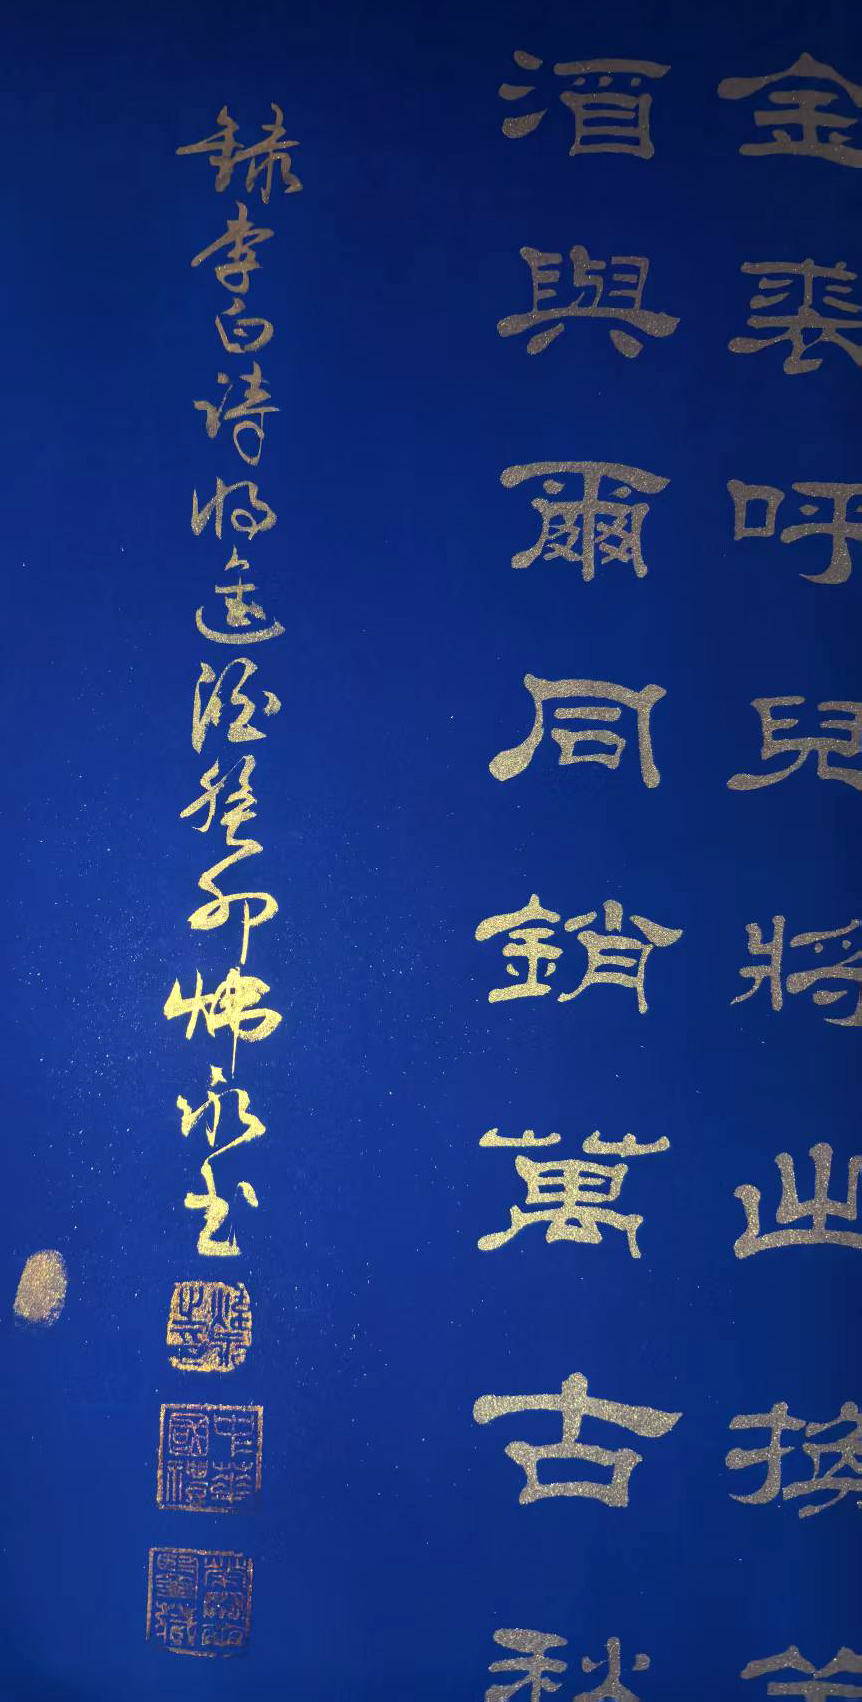 金裘呼兒將出換美
酒與爾同銷萬古愁
錄李白詩將進酒癸卯煒永書
中華國禮